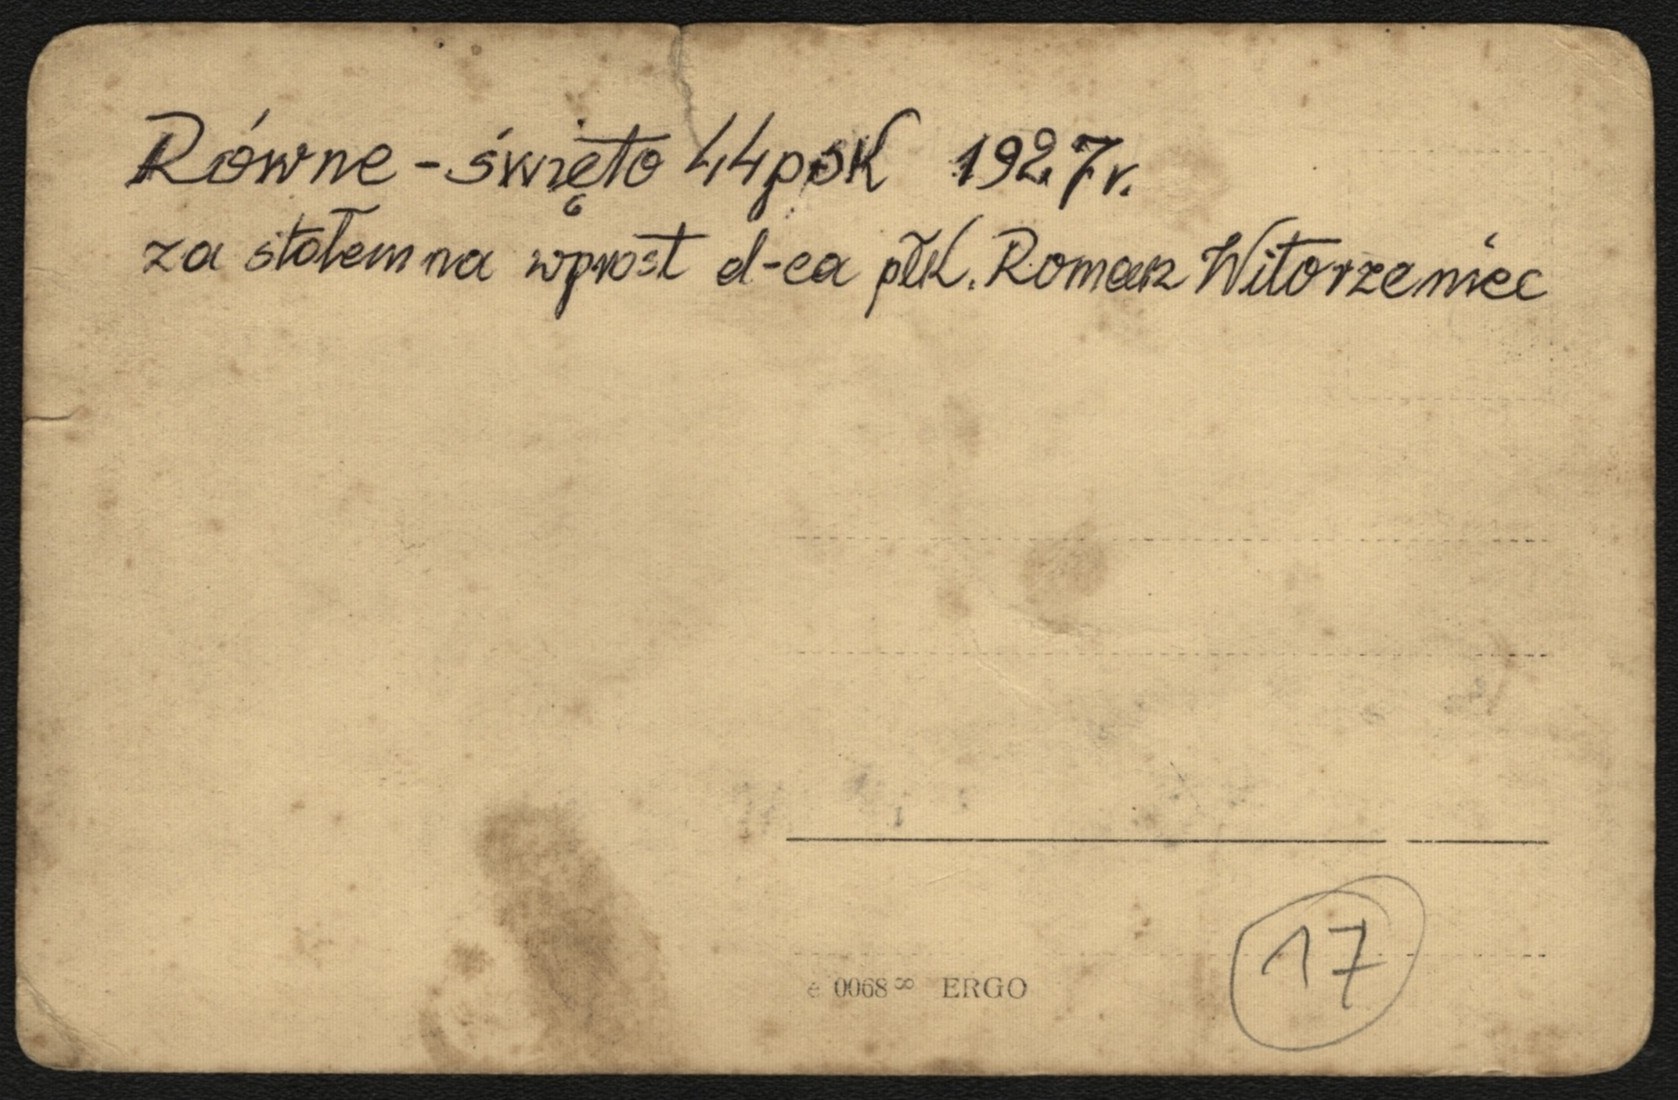 Równe - święto 44psk 1927r.
za stołem na wprost d-ca płk. Roman Witorzeniec
17
e 0068 ∞ ERGO